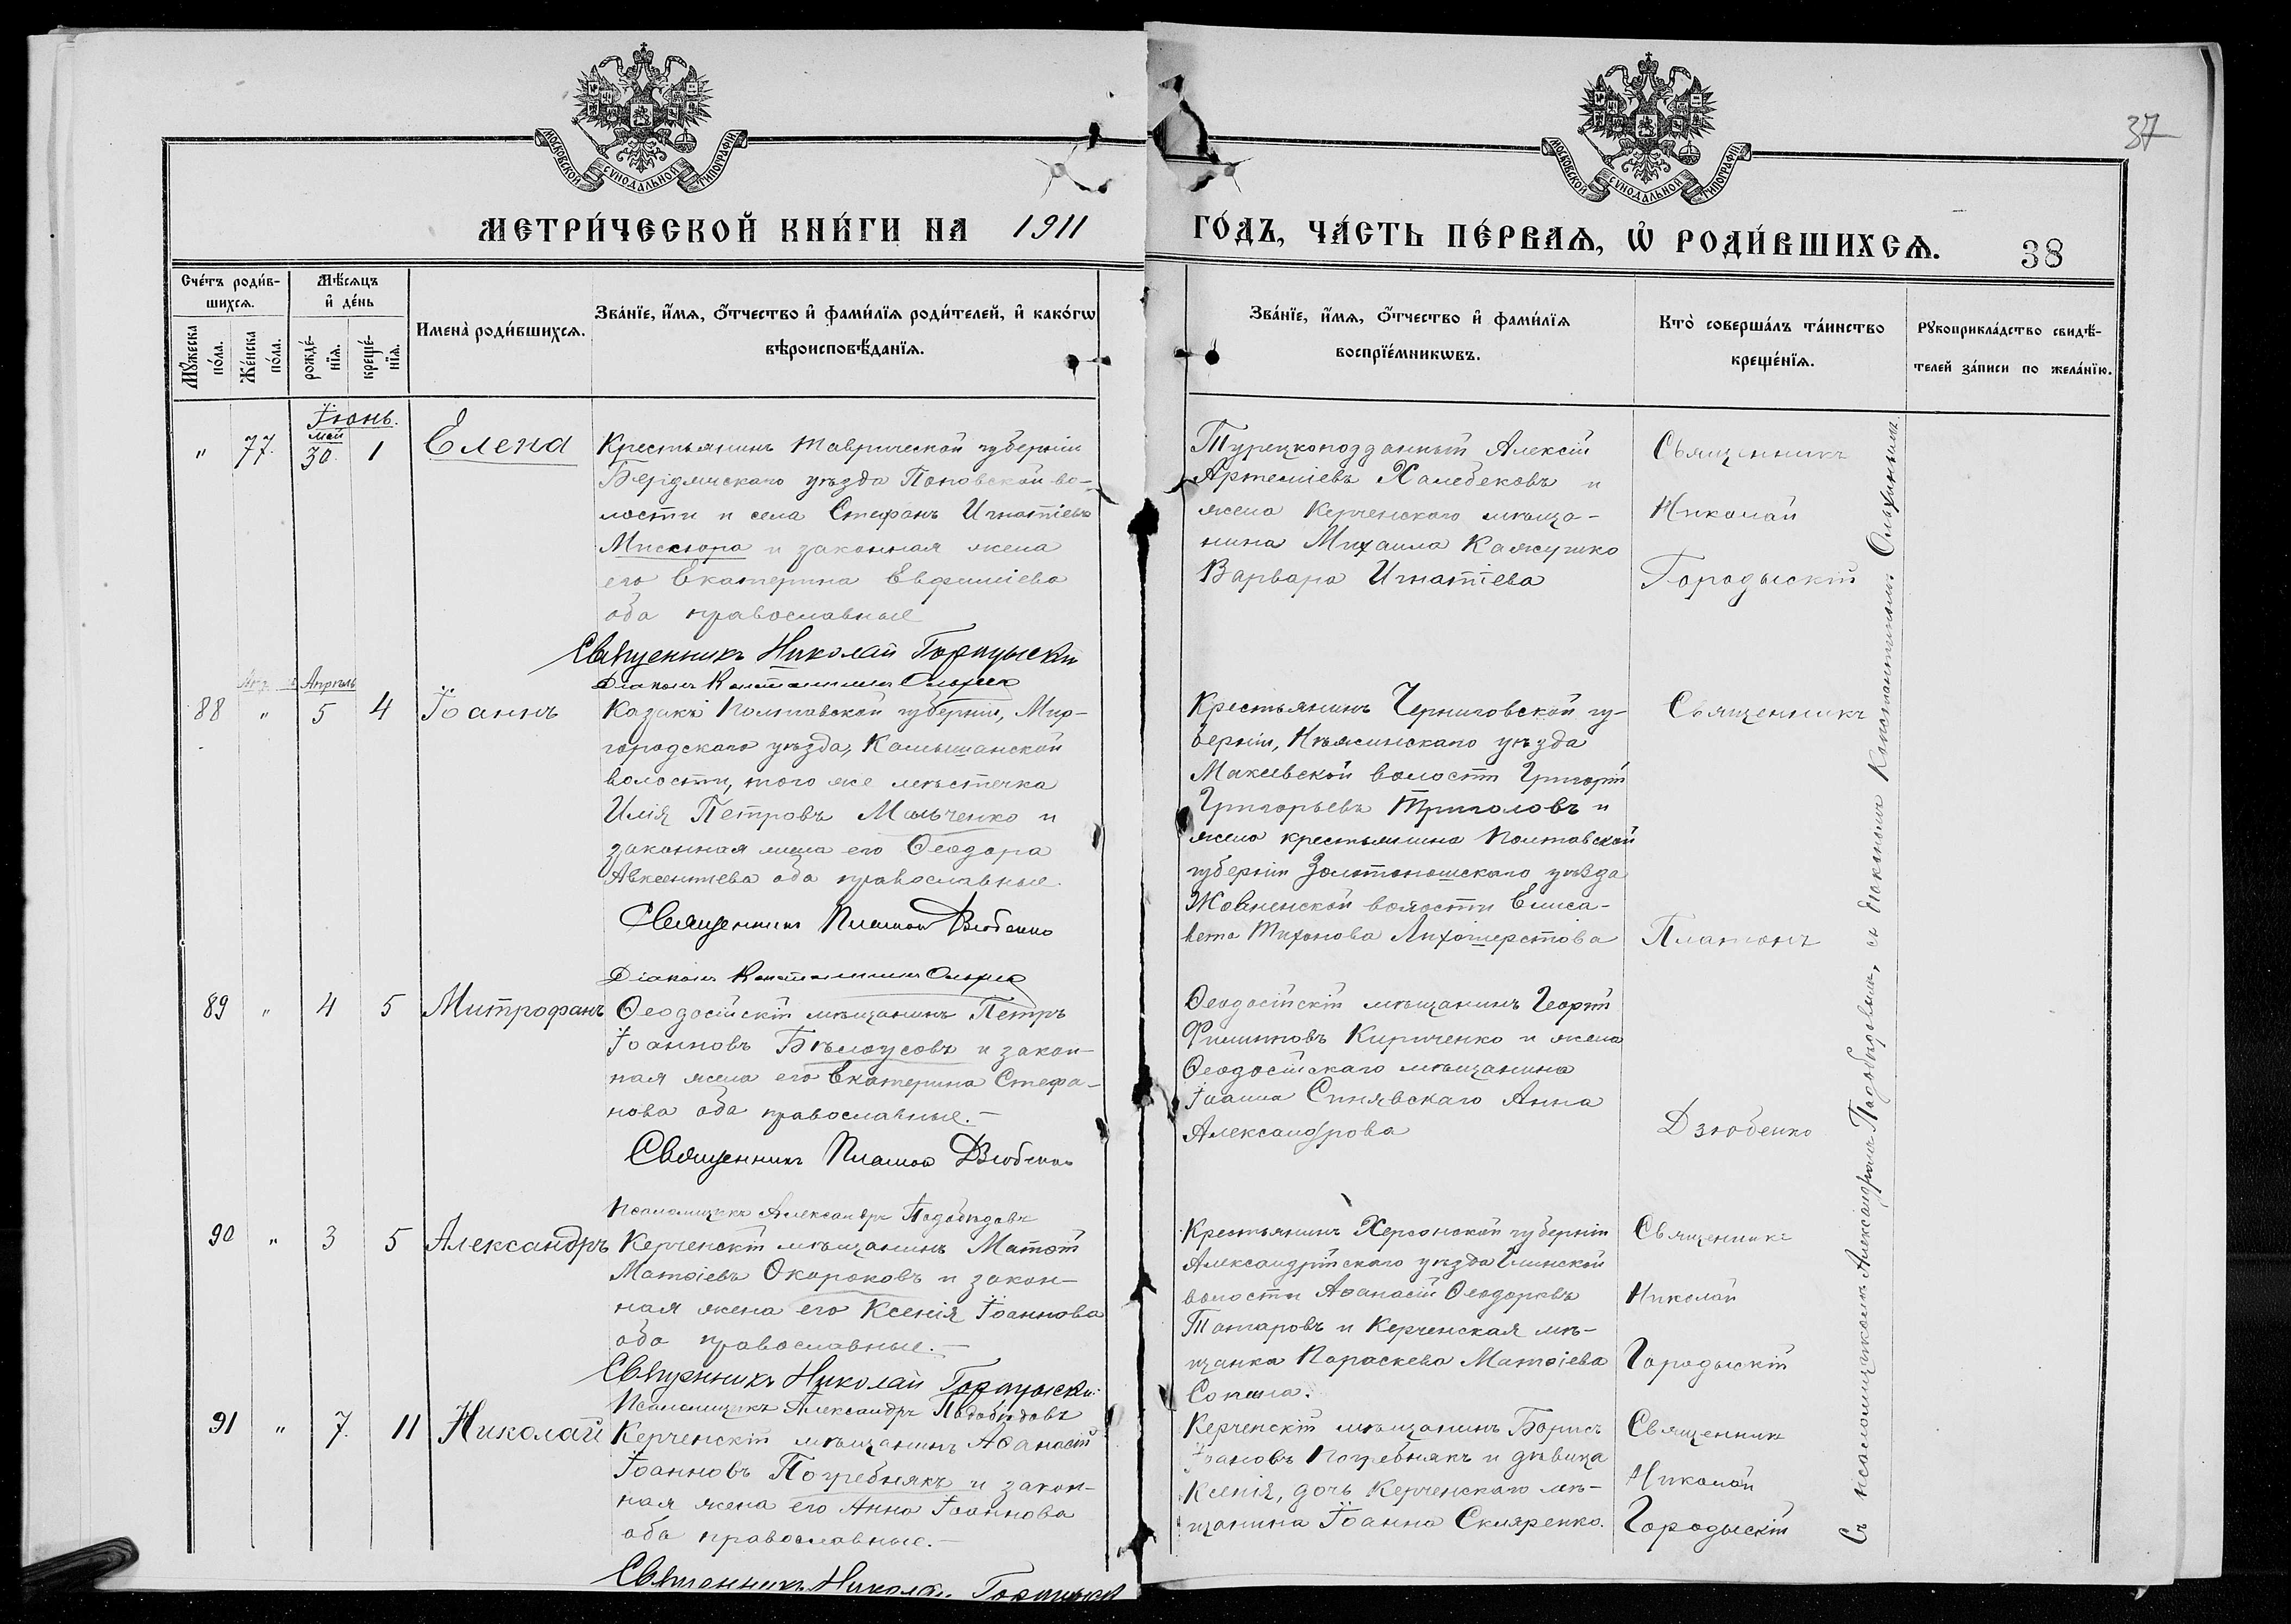 37
МОСКОВСКОЙ СѴНОДАЛЬНОЙ ТИПОГРАФІИ
МОСКОВСКОЙ СѴНОДАЛЬНОЙ ТИПОГРАФІИ
МЕТРИ́ЧЕСКОЙ КНИ́ГИ НА 1911 ГО́ДЪ, ЧА́СТЬ ПЕ́РВАѦ, Ѡ҆ РОДИ́ВШИХСѦ. 38
Сче́тъ роди́в-
шихсѧ.
Мꙋжеска по́ла.
Же́нска по́ла.
Мѣ́сѧцъ
и҆ де́нь
рожде́-
нїѧ.
креще́-
нїѧ.
Имена̀ роди́вшихсѧ.
Зва́нїе, и҆́мѧ, ѻ҆́тчество и҆ фами́лїѧ роди́телей, и҆ како́гѡ
вѣроисповѣ́данїѧ.
Зва́нїе, и҆́мѧ, ѻ҆́тчество и҆ фами́лїѧ
воспрїе́мникѡвъ.
Кто̀ соверша́лъ та́инство
креще́нїѧ.
Рꙋкоприкла́дство свидѣ́-
телей за́писи по жела́нїю.
Іюнь.
" 77. май 30. 1 Елена
Крестьянинъ Таврической губерніи
Бердянскаго уѣзда Поповской во-
лости и села Стефанъ Игнатіевъ
Мискюра и законная жена
его Екатерина Евфиміева
оба православные
Священникъ Николай Городыскій
Діаконъ Константинъ
Турецкоподданный Алексій
Артеміевъ Халебековъ и
жена Керченскаго мѣща-
нина Михаила Кажушко
Варвара Игнатіева
Священникъ
Николай
Городыскій
Апрѣль
88 " 5 4 Іоаннъ
Козакъ Полтавской губерніи, Мир-
городскаго уѣзда, Камышанской
волости, того же мѣстечка
Илія Петровъ Мальченко и
законная жена его Ѳеодора
Авксентіева оба православные.
Священникъ Платонъ Дзюбенко
Діаконъ Константинъ
Крестьянинъ Черниговской гу-
берніи, Нѣжинскаго уѣзда
Макіевской волости Григорій
Григорьевъ Триголовъ и
жена крестьянина Полтавской
губерніи Золотоношскаго уѣзда
Жовненской волости Елиса-
вета Тихонова Лихошерстова
Священникъ
Платонъ
89 " 4 5 Митрофанъ
Ѳеодосійскій мѣщанинъ Петръ
Іоанновъ Бѣлоусовъ и закон-
ная жена его Екатерина Стефа-
нова оба православные.—
Священникъ Платонъ Дзюбенко
Псаломщикъ Александръ Подобѣдовъ
Ѳеодосійскій мѣщанинъ Георгій
Филипповъ Кириченко и жена
Ѳеодосійскаго мѣщанина
Іоанна Синявскаго Анна
Александрова
Дзюбенко
90 " 3 5 Александръ
Керченскій мѣщанинъ Матѳій
Матѳіевъ Окороковъ и закон-
ная жена его Ксенія Іоаннова
оба православные.—
Священникъ Николай Городыскій
Псаломщикъ Александръ Подобѣдовъ
Крестьянинъ Херсонской губерніи
Александрійскаго уѣзда Глинской
волости Аѳанасій Ѳеодоровъ
Татаровъ и Керченская мѣ-
щанка Параскева Матѳіева
Священникъ
Николай
Городыскій
91 " 7. 11 Николай
Керченскій мѣщанинъ Аѳанасій
Іоанновъ Погребнякъ и закон-
ная жена его Анна Іоаннова
оба православные.—
Священникъ Николай Городыскій
Керченскій мѣщанинъ Борисъ
Іоановъ Погребнякъ и дѣвица
Ксенія, дочь Керченскаго мѣ-
щанина Іоанна Скляренко.
Священник
Николай
Городыскій
Съ псаломщикомъ Александромъ Подобѣдовымъ, съ діакономъ Константиномъ